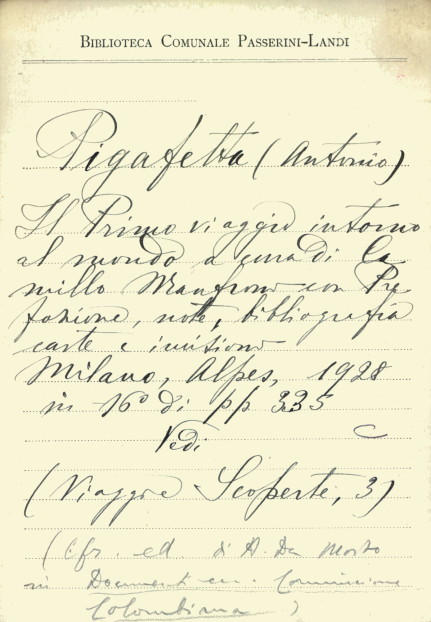 BIBLIOTECA COMUNALE PASSERINI-LANDI
Pigafetta (Antonio)
Il Primo viaggio intorno
al mondo a cura di Ca
millo Manfroni con Pre
fazione, note, bibliografia
carte e incisioni
Milano, Alpes, 1928
in 16° di pp 335
Vedi C
(Viaggi e Scoperte, 3)
(Cfr. ed. di A. Da Mosto
in Documenti Commissione
Colombiana)